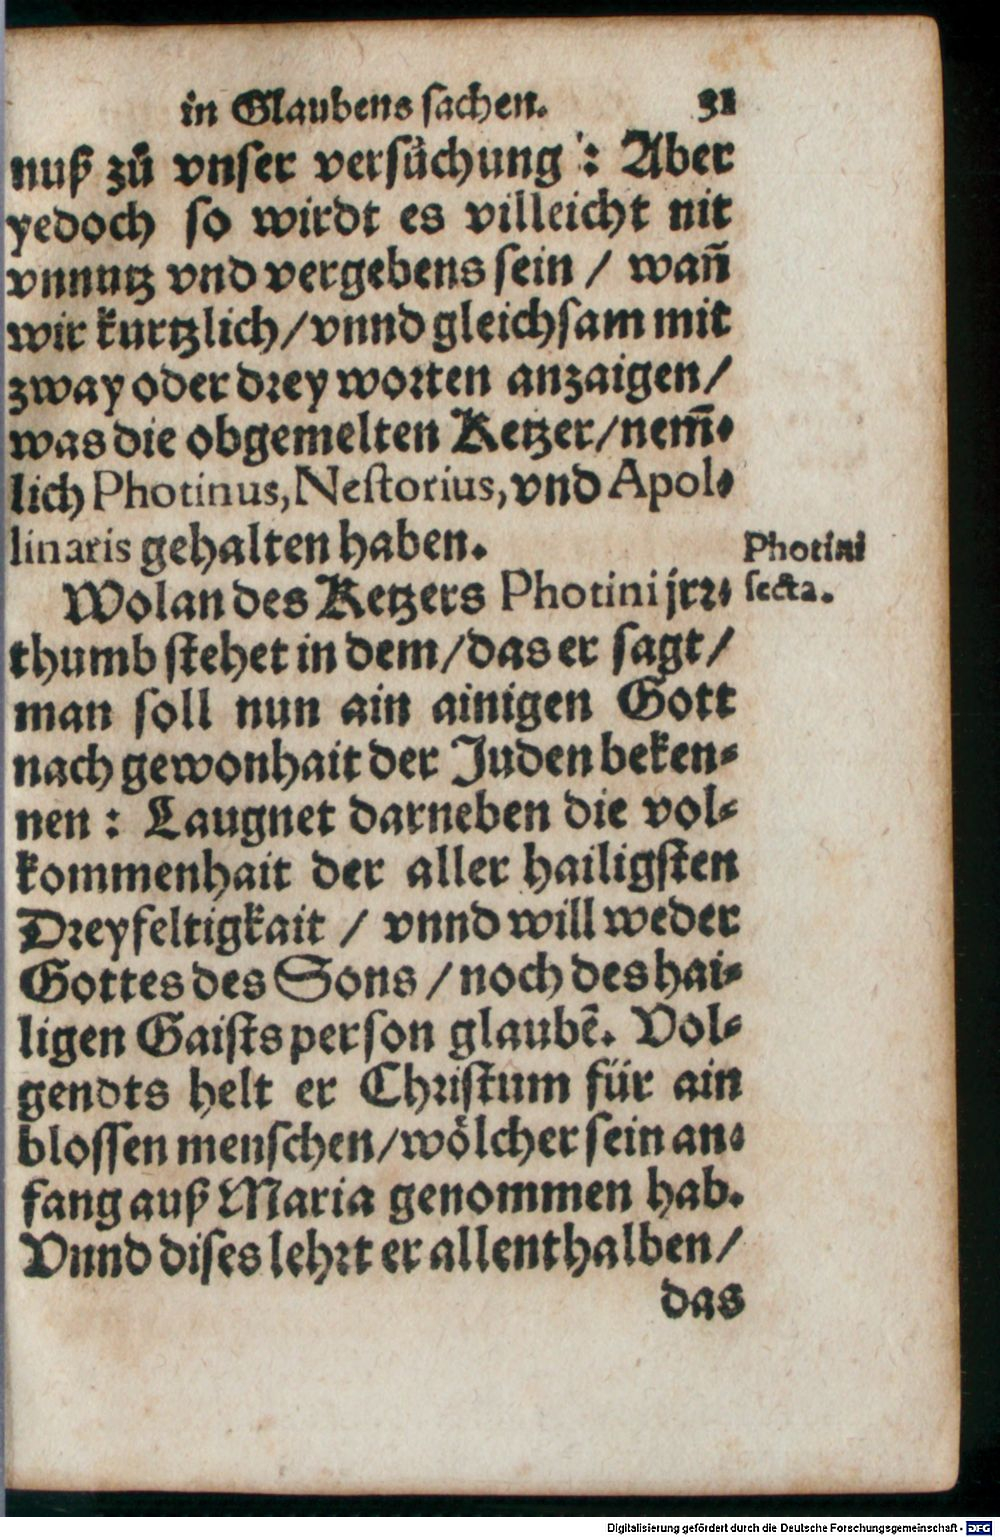 in Glaubens sachen. 31
nuß zů vnser versůchung : Aber
yedoch so wirdt es villeicht nit
vnnutz vnd vergebens sein / wañ
wir kurtzlich/vnnd gleichsam mit
zway oder drey worten anzaigen/
was die obgemelten Ketzer/nem̃-
lich Photinus, Nestorius, vnd Apol-
linaris gehalten haben.
Photini
secta.
Wolan des Ketzers Photini jrr-
thumb stehet in dem/das er sagt/
man soll nun ain ainigen Gott
nach gewonhait der Juden beken-
nen : Laugnet darneben die vol-
kommenhait der aller hailigsten
Dreyfeltigkait / vnnd will weder
Gottes des Sons / noch des hai-
ligen Gaists person glaubẽ. Vol-
gendts helt er Christum für ain
blossen menschen/wölcher sein an-
fang auß Maria genommen hab.
Vnnd dises lehrt er allenthalben/
das
Digitalisierung gefördert durch die Deutsche Forschungsgemeinschaft - DFG